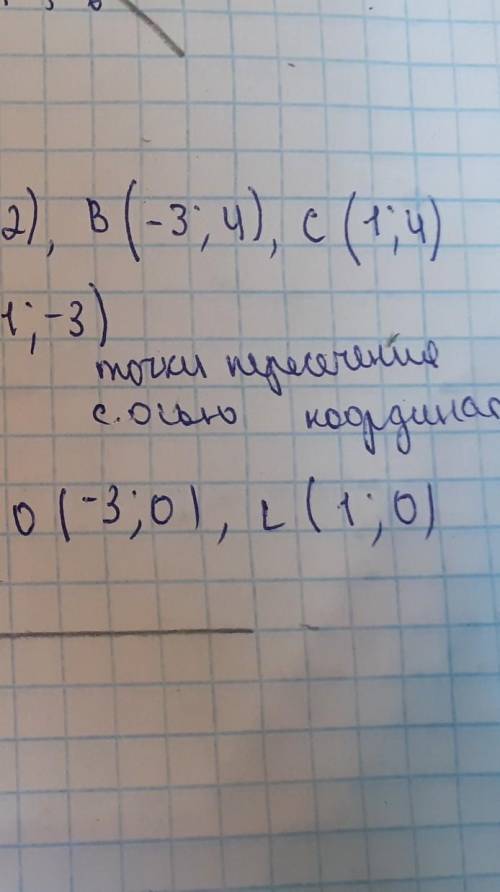 2), B (-3; 4), C (1; 4)
1; -3)
точки пересечения
с осью координат
O (-3; 0), L (1; 0)